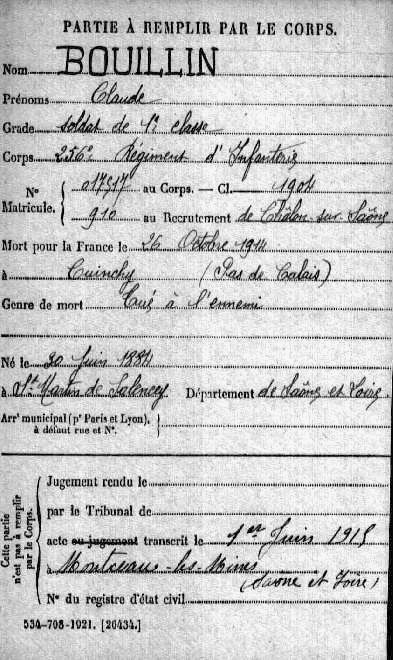 PARTIE À REMPLIR PAR LE CORPS.
Nom BOUILLIN
Prénoms Claude
Grade soldat de 1e classe
Corps 256e Régiment d'Infanterie
N° Matricule. { 017517 au Corps. — Cl. 1904
910 au Recrutement de Châlon-sur-Saône
Mort pour la France le 26 Octobre 1914
à Cuinchy (Pas de Calais)
Genre de mort Tué à l'ennemi
Né le 30 Juin 1884
à St Martin de Salencey Département de Saône et Loire.
Arrt municipal (pr Paris et Lyon),
à défaut rue et N°.
Cette partie n'est pas à remplir par le Corps.
Jugement rendu le
par le Tribunal de
acte ou jugement transcrit le 1er Juin 1915
à Montceau-les-Mines
(Saône et Loire)
N° du registre d'état civil
534-708-1921. [26434.]